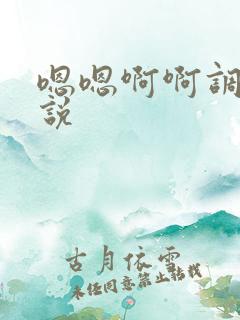 嗯嗯啊啊調
說
古月依雲
未经同意禁止转载